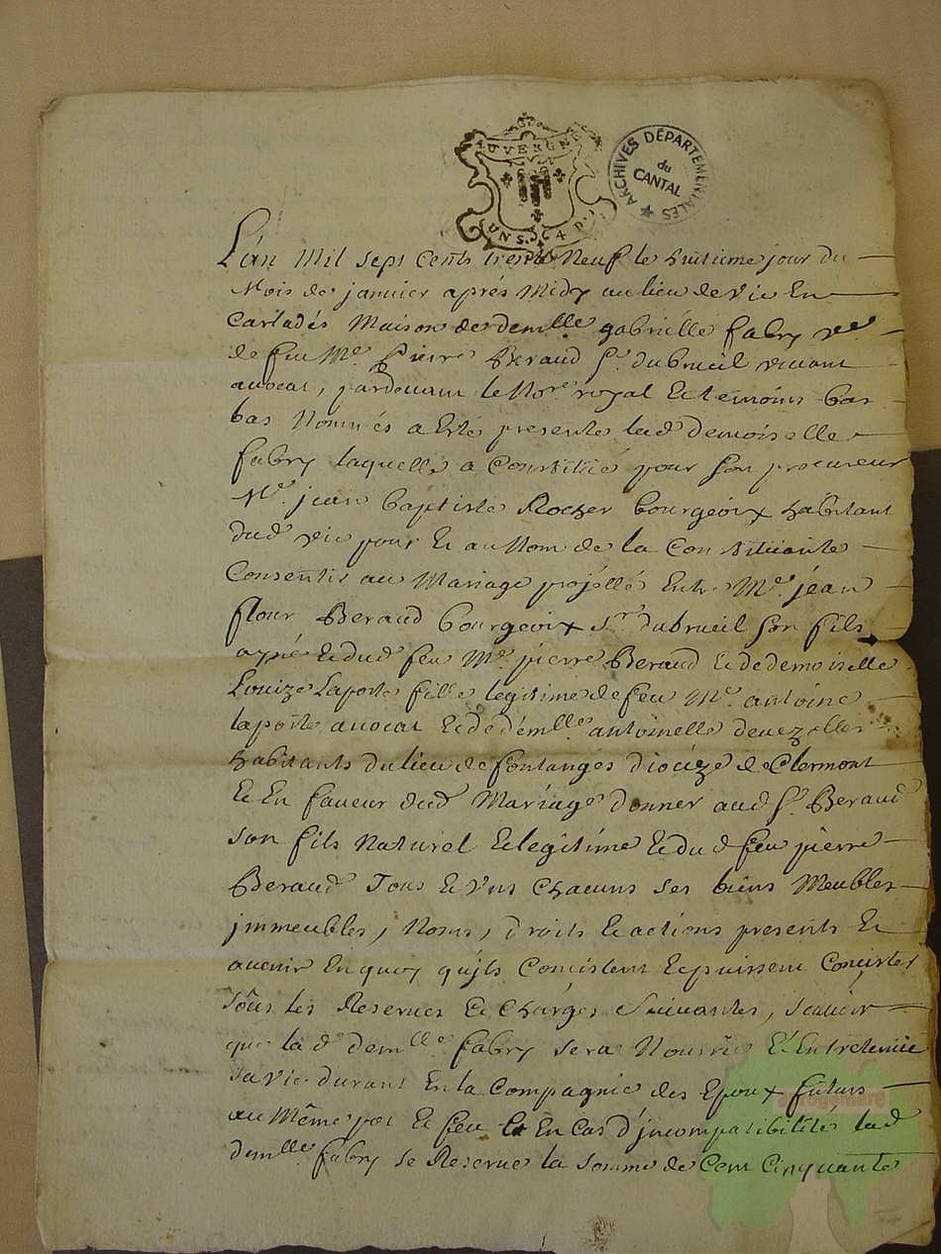 AUVERGNE
UN S. 4 D.
ARCHIVES DÉPARTEMENTALES
du
CANTAL
L'an Mil sept Cents trente Neuf le huitieme jour du
Mois de janvier aprés Midy au lieu de Vic En
Carladés Maison de demlle gabrielle fabry vve
de feu Me Pierre Beraud Sr. dubrueil vivant
avocat, pardevant le Nore royal Et temoins bas
bas Nommés a Esté presente lad demoiselle
fabry laquelle a Constitué pour son procureur
Me. jean baptiste Rocher bourgeoix habitant
dud vic pour Et au Nom de la Constituante
Consentir au Mariage projetté Entre Me. jean
flour Beraud bourgeoix Sr. dubrueil son fils
Et dud feu Me. pierre Beraud Et de demoiselle
Louize Laporte fille legitime de feu Me. antoine
laporte avocat Et de demlle. antoinette devezelles
habitants du lieu de fontanges diocèze de Clermont
Et En faveur dud Mariage donner aud Sr. Beraud
son fils Naturel Et legitime Et du d feu pierre
Beraud Tous Et Uns Chacuns ses biens Meubles
jmmeubles, Noms, droits Et actions presents Et
avenir En quoy quils Concistent Et puissent Concister
sous les Reserves Et Charges Suivantes, scavoir
que la d demlle fabry sera Nourrie Et Entretenüe
sa vie durant En la Compagnie des Epoux futurs
au Même pot Et feu Et En Cas d'jncompatibilité lad
demlle fabry se Reserve la somme de Cent Cinquante